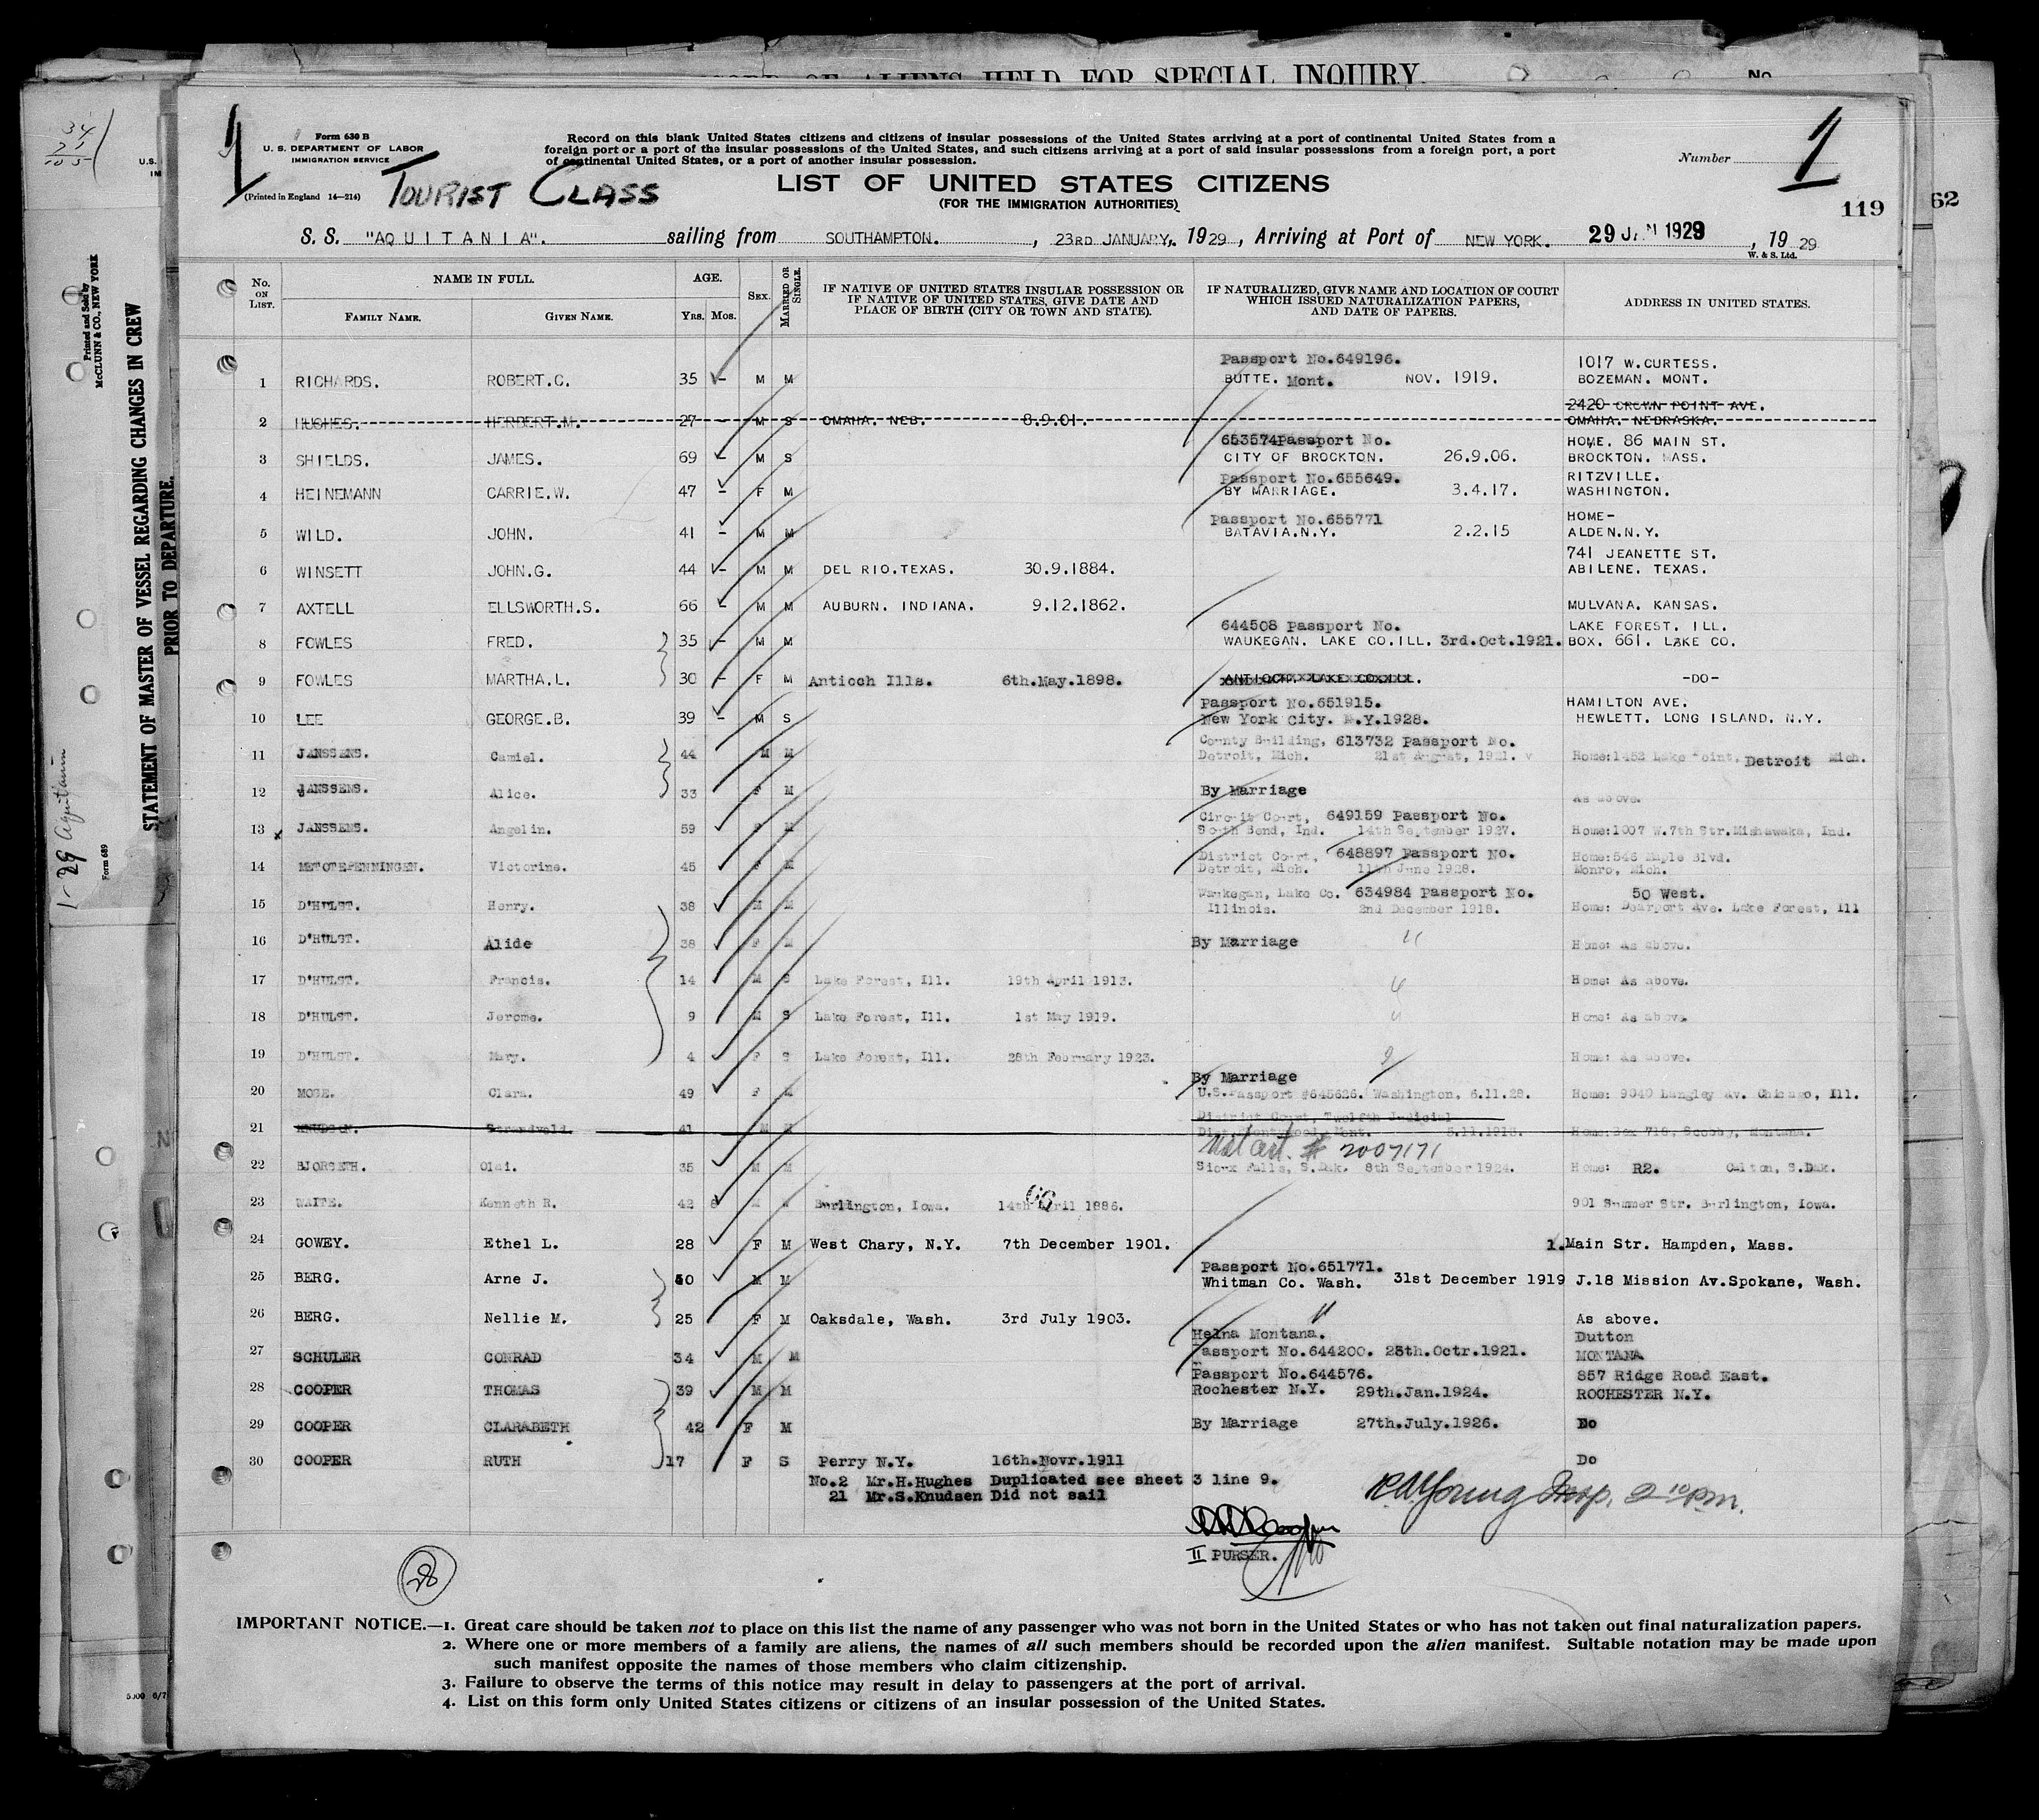 OF ALIENS HELD FOR SPECIAL INQUIRY.
No.
Form 630 B
U. S. DEPARTMENT OF LABOR
IMMIGRATION SERVICE
(Printed in England 14—214)
TOURIST CLASS
Record on this blank United States citizens and citizens of insular possessions of the United States arriving at a port of continental United States from a
foreign port or a port of the insular possessions of the United States, and such citizens arriving at a port of said insular possessions from a foreign port, a port
of continental United States, or a port of another insular possession.
LIST OF UNITED STATES CITIZENS
(FOR THE IMMIGRATION AUTHORITIES)
Number 1
119
62
S. S. "AQUITANIA". sailing from SOUTHAMPTON. , 23RD JANUARY, 1929, Arriving at Port of NEW YORK. 29 JAN 1929 , 19 29
W. & S. Ltd.
No. ON LIST. NAME IN FULL. FAMILY NAME. GIVEN NAME. AGE. Yrs. Mos. SEX. MARRIED OR SINGLE. IF NATIVE OF UNITED STATES INSULAR POSSESSION OR IF NATIVE OF UNITED STATES, GIVE DATE AND PLACE OF BIRTH (CITY OR TOWN AND STATE). IF NATURALIZED, GIVE NAME AND LOCATION OF COURT WHICH ISSUED NATURALIZATION PAPERS, AND DATE OF PAPERS. ADDRESS IN UNITED STATES.
Passport No.649196. 1017 W.CURTESS.
1 RICHARDS. ROBERT.C. 35 - M M BUTTE. Mont. NOV. 1919. BOZEMAN. MONT.
2420 CROWN POINT AVE.
2 HUGHES. HERBERT.M. 27 - M S OMAHA. NEB. 8.9.01. OMAHA. NEBRASKA.
653574Passport No. HOME. 86 MAIN ST.
3 SHIELDS. JAMES. 69 - M S CITY OF BROCKTON. 26.9.06. BROCKTON. MASS.
Passport No.655649. RITZVILLE.
4 HEINEMANN CARRIE.W. 47 - F M BY MARRIAGE. 3.4.17. WASHINGTON.
Passport No.655771 HOME-
5 WILD. JOHN. 41 - M M BATAVIA.N.Y. 2.2.15 ALDEN.N.Y.
741 JEANETTE ST.
6 WINSETT JOHN.G. 44 - M M DEL RIO.TEXAS. 30.9.1884. ABILENE. TEXAS.
7 AXTELL ELLSWORTH.S. 66 - M M AUBURN. INDIANA. 9.12.1862. MULVANA. KANSAS.
644508 Passport No. LAKE FOREST. ILL.
8 FOWLES FRED. 35 - M M WAUKEGAN. LAKE CO.ILL. 3rd.Oct.1921. BOX. 661. LAKE CO.
9 FOWLES MARTHA.L. 30 - F M Antioch Ills. 6th.May.1898. -DO-
Passport No.651915. HAMILTON AVE.
10 LEE GEORGE.B. 39 - M S New York City. N.Y.1928. HEWLETT. LONG ISLAND. N.Y.
County Building, 613732 Passport No.
11 JANSSENS. Camiel. 44 M M Detroit, Mich. 21st August, 1921. Home:1452 Lake Point. Detroit Mich.
12 JANSSENS. Alice. 33 F M By Marriage As above.
Circuit Court, 649159 Passport No.
13 JANSSENS. Angelin. 59 M South Bend, Ind. 14th September 1927. Home:1007 W.7th Str.Mishawaka, Ind.
District Court, 648897 Passport No. Home:546 Maple Blvd.
14 METOTEPENNINGEN. Victorine. 45 F M Detroit, Mich. 11th June 1928. Monro, Mich.
Waukegan, Lake Co. 634984 Passport No. 50 West.
15 D'HULST. Henry. 38 M M Illinois. 2nd December 1918. Home: Dearport Ave. Lake Forest, Ill
16 D'HULST. Alide 38 F M By Marriage " Home: As above.
17 D'HULST. Francis. 14 M S Lake Forest, Ill. 19th April 1913. " Home: As above.
18 D'HULST. Jerome. 9 M S Lake Forest, Ill. 1st May 1919. " Home: As above.
19 D'HULST. Mary. 4 F S Lake Forest, Ill. 28th February 1923. Home: As above.
By Marriage
20 MOSE. Clara. 49 F M U.S.Passport #645626. Washington, 6.11.28. Home: 9040 Langley Av. Chicago, Ill.
District Court, Twelfth Judicial
21 KNUDSEN. 41 M M Mont. 5.11.1918. Home:Box 718, Scobby, Montana.
Nat Cert. # 2007171
22 BJORSETH. Olai. 35 M M Sioux Falls, S.Dak. 8th September 1924. Home: R2. Calton, S.Dak.
23 WAITE. Kenneth R. 42 8 M Burlington, Iowa. 14th April 1886. 901 Summer Str. Burlington, Iowa.
24 GOWEY. Ethel L. 28 F M West Chary, N.Y. 7th December 1901. 1.Main Str. Hampden, Mass.
Passport No.651771.
25 BERG. Arne J. 50 M M Whitman Co. Wash. 31st December 1919 J.18 Mission Av.Spokane, Wash.
26 BERG. Nellie M. 25 F M Oaksdale, Wash. 3rd July 1903. " As above.
Helna Montana. Dutton
27 SCHULER CONRAD 34 M M Passport No.644200. 28th.Octr.1921. MONTANA
Passport No.644576. 857 Ridge Road East.
28 COOPER THOMAS 39 M M Rochester N.Y. 29th.Jan.1924. ROCHESTER N.Y.
29 COOPER CLARABETH 42 F M By Marriage 27th.July.1926. Do
30 COOPER RUTH 17 F S Perry N.Y. 16th.Novr.1911 Do
No.2 Mr.H.Hughes Duplicated see sheet 3 line 9.
21 Mr.S.Knudsen Did not sail
R W Young Insp. 2 10 PM.
II PURSER.
28
IMPORTANT NOTICE.—1. Great care should be taken not to place on this list the name of any passenger who was not born in the United States or who has not taken out final naturalization papers.
2. Where one or more members of a family are aliens, the names of all such members should be recorded upon the alien manifest. Suitable notation may be made upon
such manifest opposite the names of those members who claim citizenship.
3. Failure to observe the terms of this notice may result in delay to passengers at the port of arrival.
4. List on this form only United States citizens or citizens of an insular possession of the United States.
STATEMENT OF MASTER OF VESSEL REGARDING CHANGES IN CREW
PRIOR TO DEPARTURE.
Printed and Sold by
McCLUNN & CO., NEW YORK
Form 689
1-29 Aquitania